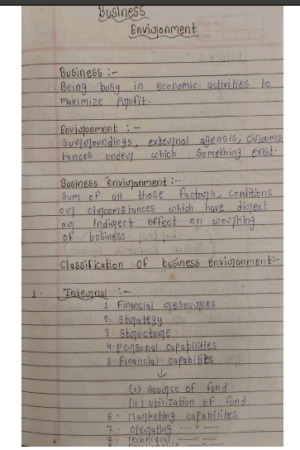 Business
Environment
Business :-
Being busy in economic activities to
maximize Profit.
Environment :-
Surroundings, external agensis, circums
tances under which Something exist.
Business environment :-
Sum of all those Factors, conditions
or circumstances which have direct
or Indirect effect on working
of business
Classification of business environment:-
1. Internal :-
1. Financial resources
2. Strategy
3. Structure
4. Personal capabilities
5. Financial capabilits
↓
(i) Source of fund
(ii) utilization of fund
6. marketing capabilites
7. operating — " —
8. Technical — " —